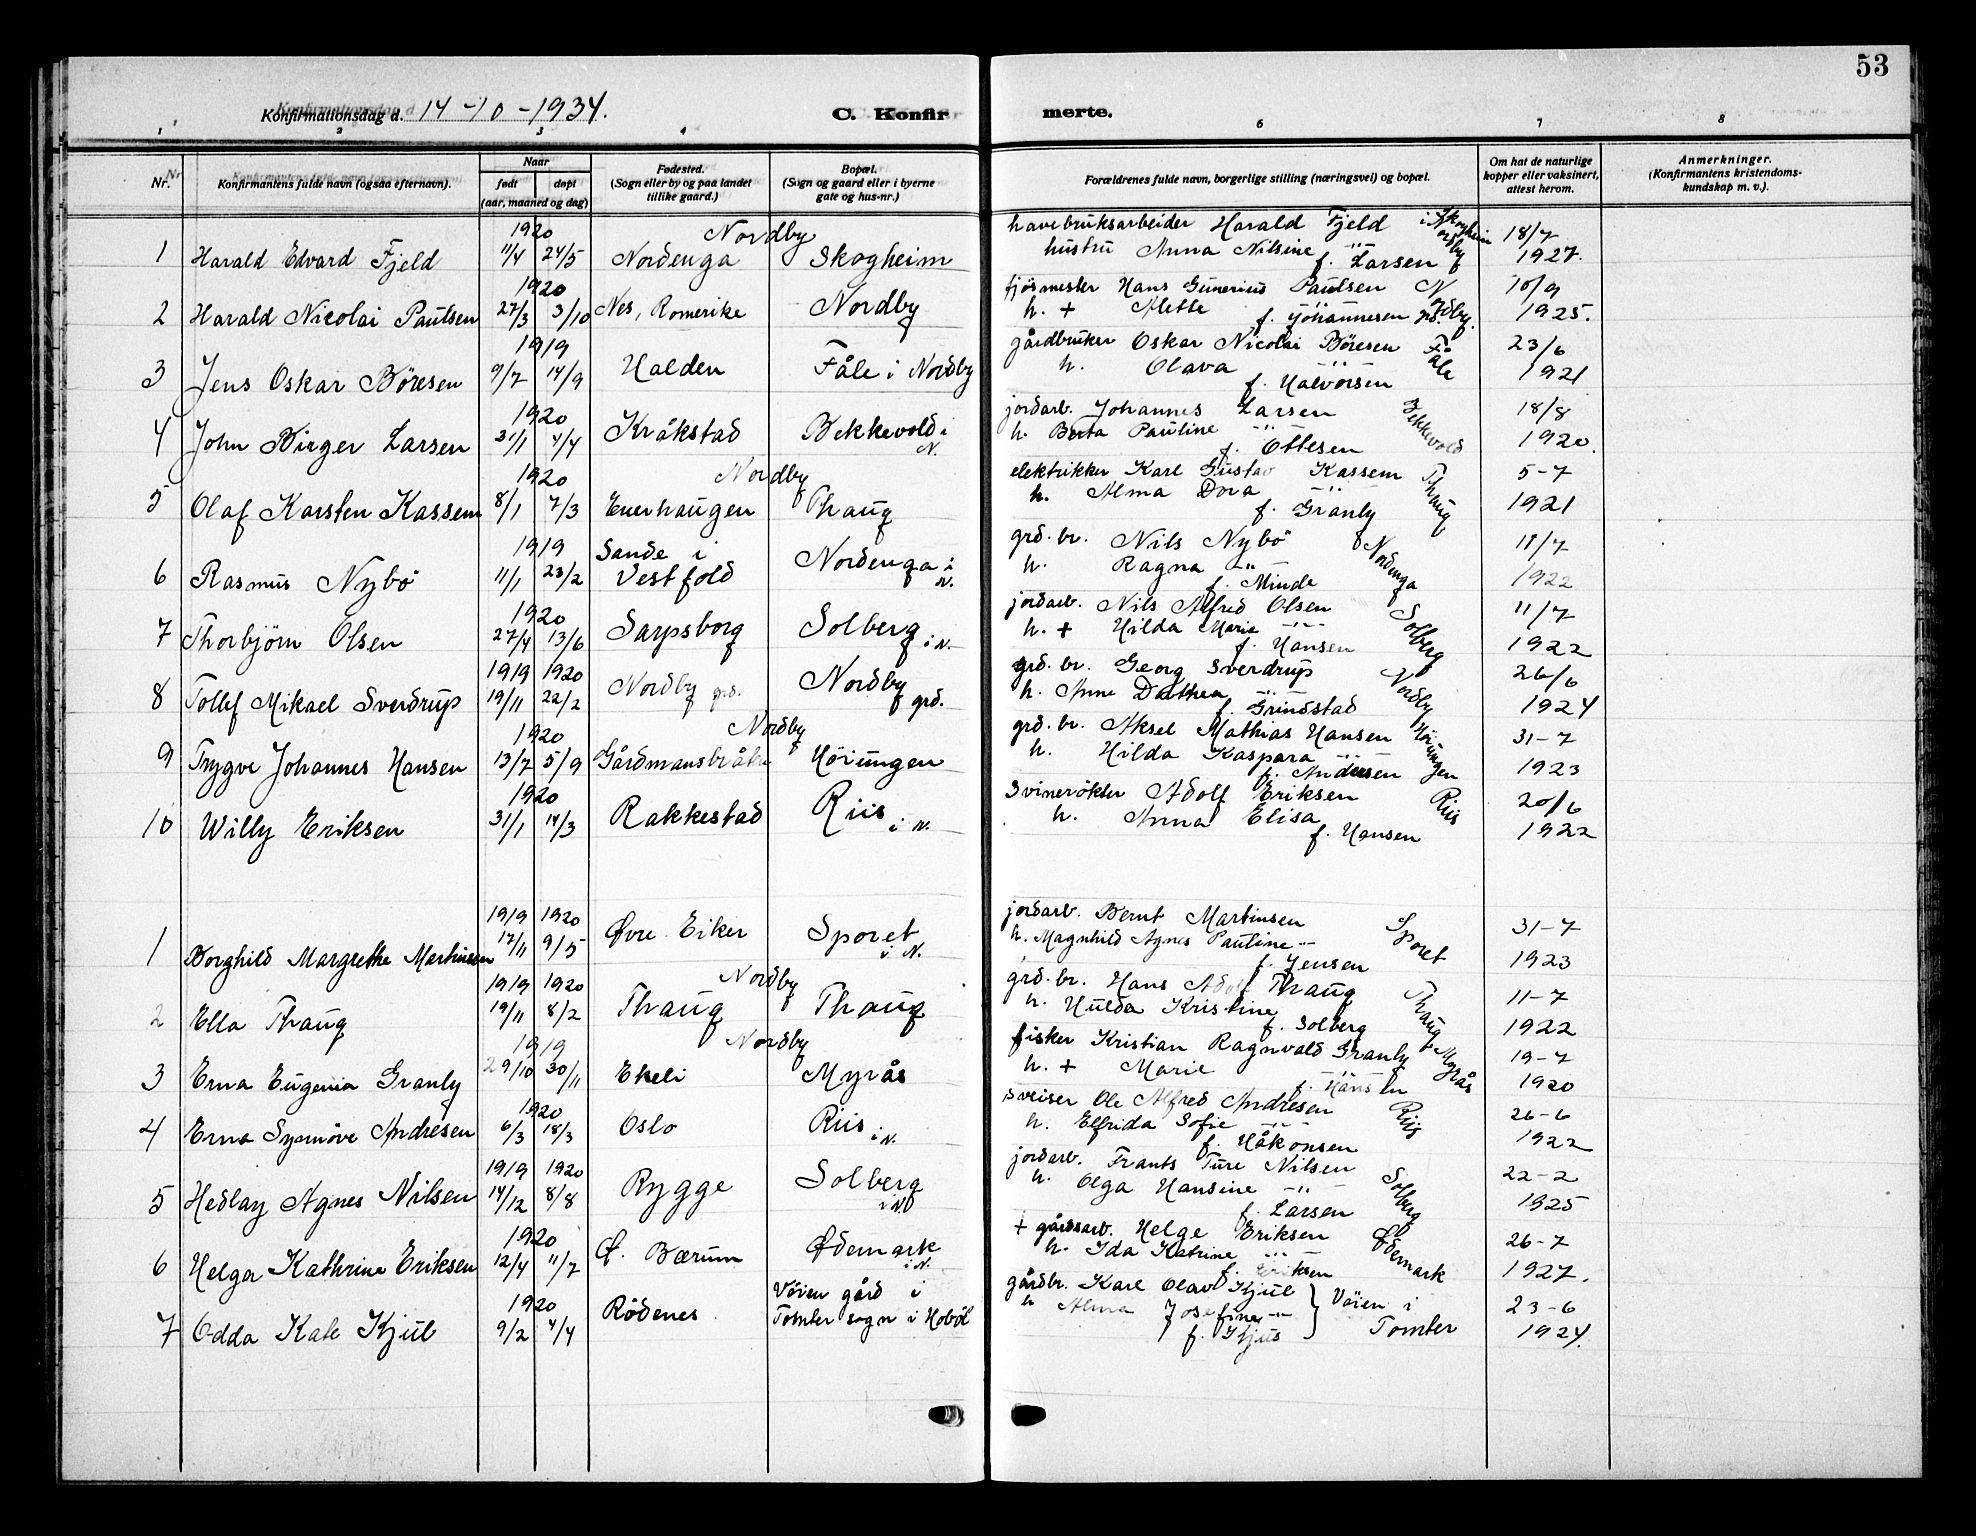 53
Konfirmationsdag d. 14-10-1934.
C. Konfirmerte.
1 2 3 4 6 7 8
Nr.
Konfirmantens fulde navn (ogsaa efternavn).
Naar
født
døpt
(aar, maaned og dag)
Fødested.
(Sogn eller by og paa landet
tillike gaard.)
Bopæl.
(Sogn og gaard eller i byerne
gate og hus-nr.)
Forældrenes fulde navn, borgerlige stilling (næringsvei) og bopæl.
Om hat de naturlige
kopper eller vaksinert,
attest herom.
Anmerkninger.
(Konfirmantens kristendoms-
kundskap m. v.).
1920 Nordby havebruksarbeider Harald Fjeld i Skogheim Nordby 18/7
1 Harald Edvard Fjeld 11/4 24/5 Nordenga Skogheim hustru Anna Nilsine f. Larsen 1927.
1920 fjösmester Hans Gunerius Paulsen Nordby grd. 10/9
2 Harald Nicolai Paulsen 27/3 3/10 Nes, Romerike Nordby h. + Mette f. Johannesen 1925.
1919 gårdbruker Oskar Nicolai Böresen Fåle 23/6
3 Jens Oskar Böresen 9/7 14/9 Halden Fåle i Nordby h. Olava f. Halvorsen 1921
1920 jordarb. Johannes Larsen Bekkevold 18/8
4 John Birger Larsen 31/1 4/4 Kråkstad Bekkevold i N. h. Berta Pauline " f. Ottesen 1920.
1920 Nordby elektriker Karl Gustav Kassem Thaug 5-7
5 Olaf Karsten Kassem 8/1 7/3 Enerhaugen Thaug h. Alma Dora " f. Granly 1921
1919 Sande i grd. br. Nils Nybö Nordenga 11/7
6 Rasmus Nybö 11/1 23/2 Vestfold Nordenga i N. h. Ragna " f. Minde 1922
1920 jordarb. Nils Alfred Olsen Solberg 11/7
7 Thorbjörn Olsen 27/4 13/6 Sarpsborg Solberg i N. h. + Hilda Marie -"- f. Hansen 1922
1919 1920 grd. br. Georg Sverdrup Nordby 26/6
8 Tollef Mikael Sverdrup 19/11 22/2 Nordby grd. Nordby grd. h. Anne Dorthea " f. Grindstad 1924
1920 Nordby grd. br. Aksel Mathias Hansen Höiungen 31-7
9 Trygve Johannes Hansen 13/7 5/9 Gårdmansbråtn Höiungen h. Hilda Kaspara " f. Andersen 1923
1920 svinerökter Adolf Eriksen Riis 20/6
10 Willy Eriksen 31/1 14/3 Rakkestad Riis i N. h. Anna Elisa f. Hansen 1922
1919 1920 jordarb. Bernt Martinsen Sporet 31-7
1 Borghild Margrethe Martinsen 17/11 9/5 Øvre Eiker Sporet i N. h. Magnhild Agnes Pauline -"- f. Jensen 1923
1919 1920 Nordby grd. br. Hans Adolf Thaug Thaug 11-7
2 Ella Thaug 19/11 8/2 Thaug Thaug h. Hulda Kristine f. Solberg 1922
1919 Nordby fisker Kristian Ragnvald Granly Myrås 19-7
3 Erna Eugenia Granly 29/10 30/11 Ekeli Myrås h. + Marie f. Hansen 1920
1920 sveiser Ole Alfred Andresen Riis 26-6
4 Erna Synnöve Andresen 6/3 18/3 Oslo Riis i N. h. Elfrida Sofie f. Håkonsen 1922
1919 1920 jordarb. Frants Ture Nilsen Solberg 22-2
5 Hedlay Agnes Nilsen 14/12 8/8 Rygge Solberg i N. h. Olga Hansine -"- f. Larsen 1925
1920 + gårdsarb. Helge Eriksen Ødemark 26-7
6 Helga Kathrine Eriksen 12/4 11/7 Ø. Bærum Ødemark i N. h. Ida Katrine " f. Eriksen 1927.
1920 Vöien gård i gårdbr. Karl Olav Kjul } Vöien i 23-6
7 Odda Kate Kjul 9/2 4/4 Rödenes Tomter sogn i Hobøl h Alma Josefine -"- f. Kjus Tomter 1924.